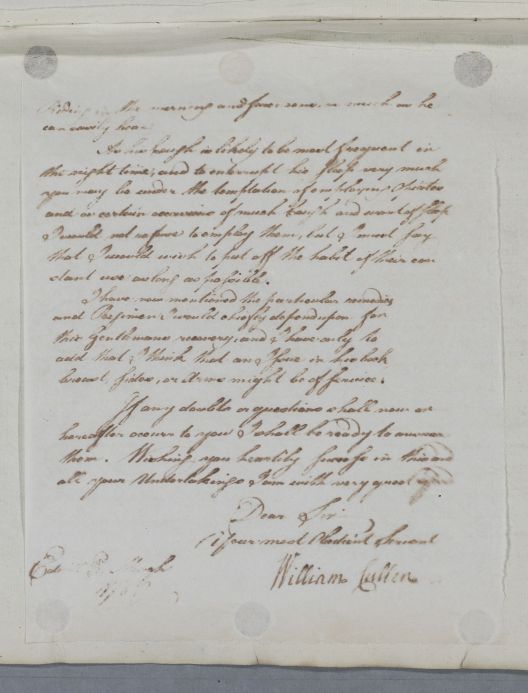 Riding in the morning and forenoon, as much as he
can easily bear.
As his Cough is likely to be most frequent in
the night time, and to interrupt his sleep very much
you may be under the temptation of employing Opiates
and on certain occasions of much Cough and want of sleep
I would not refuse to employ them, but I must say
that I would wish to put off the habit of their con
stant use as long as possible.
I have now mentioned the particular remedies
and Regimen I would chiefly depend upon for
this Gentlemans recovery, and I have only to
add that I think that an Issue in his back
breast, sides, or Arms might be of service.
If any doubts or questions shall now or
hereafter occurr to you I shall be ready to answer
them. Wishing you heartily success in this and
all your Undertakings I am with very great
Dear Sir
Your most Obedient Servant
William Cullen
March